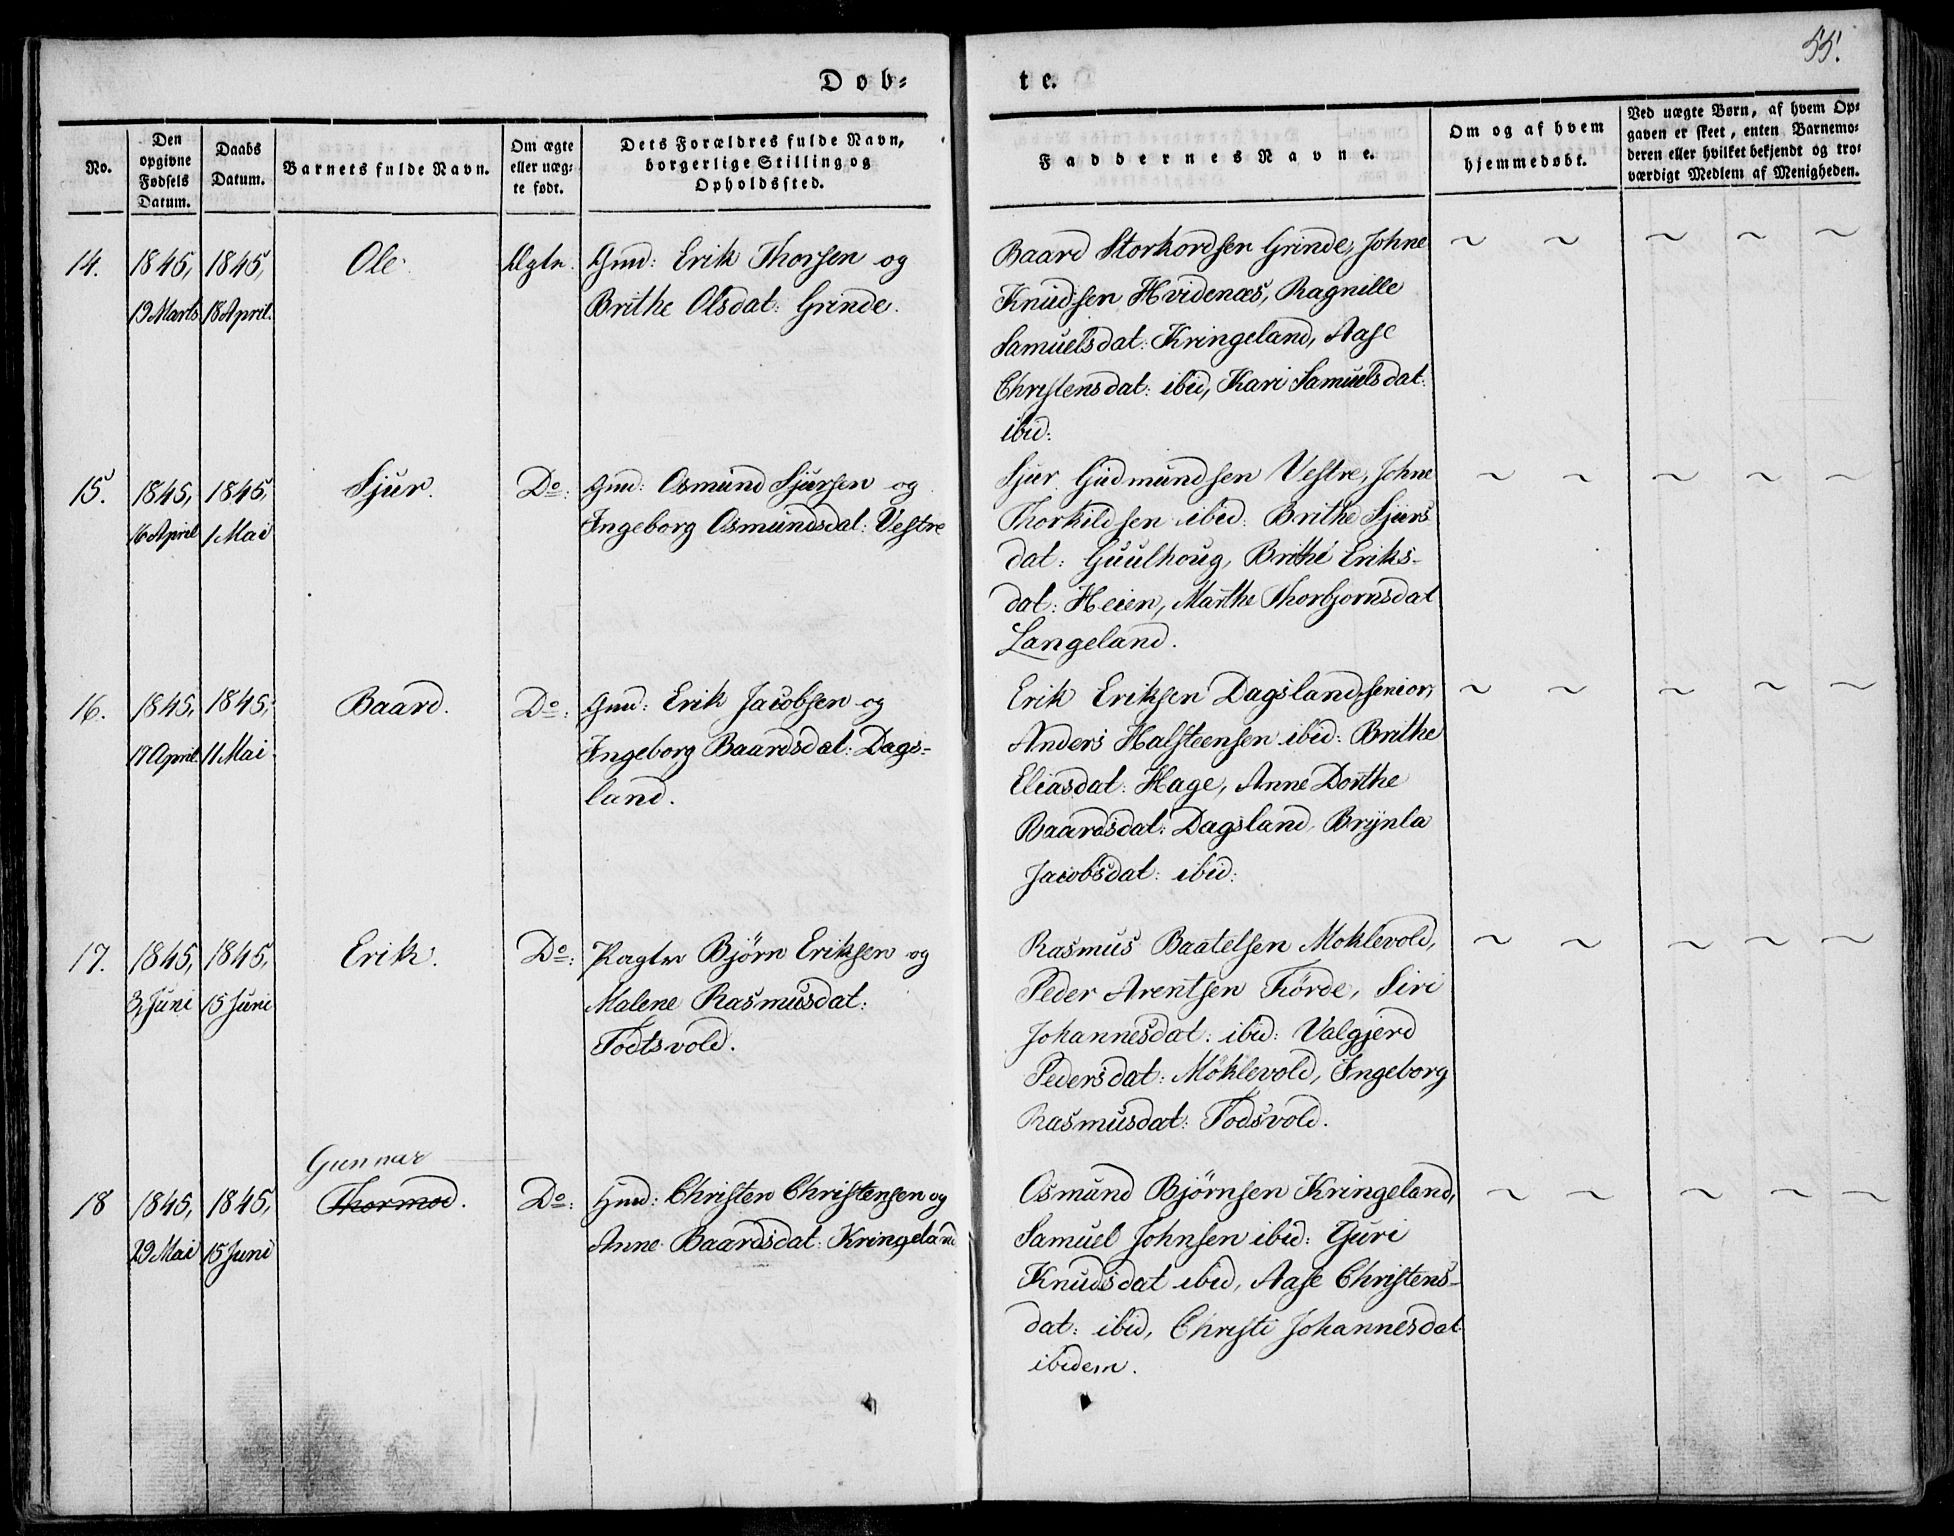 55.
Dob-
te.
No.
Den opgivne Fødsels Datum.
Daabs Datum.
Barnets fulde Navn.
Om ægte eller uægte født.
Dets Forældres fulde Navn, borgerlige Stilling og Opholdssted.
Faddernes Navne.
Om og af hvem hjemmedøbt.
Ved uægte Børn, af hvem Opgaven er skeet, enten Barnemoderen eller hvilket bekjendt og troværdigt Medlem af Menigheden.
14. 1845, 1845, Ole. Ægte. Gmd: Erik Thorsen og
19 Marts 18 April. Brithe Olsdat: Grinde.
Baard Storkordsen Grinde, Johne
Knudsen Hvidenæs, Ragnille
Samuelsdat: Kringeland, Aase
Christensdat: ibid, Kari Samuelsdat:
ibid:
15. 1845, 1845, Sjur. Do: Gmd: Osmund Sjursen og
16 April 1 Mai Ingeborg Osmundsdat: Vestre
Sjur Gudmundsen Vestre, Johne
Thorkildsen ibid: Brithe Sjurs-
dat: Guulhoug, Brithe Eriks-
dat: Heien, Marthe Thorbjornsdat
Langeland.
16. 1845, 1845, Baard. Do: Gmd: Erik Jacobsen og
17 April 11 Mai. Ingeborg Baardsdat: Dags-
land.
Erik Eriksen Dagsland senior,
Anders Halsteensen ibid: Brithe
Eliasdat: Hage, Anne Dorthe
Baardsdat: Dagsland, Brynla
Jacobsdat: ibid:
17. 1845, 1845, Erik. Do: Pagter Bjørn Eriksen og
3 Juni 15 Juni Malene Rasmusdat:
Todtsvold.
Rasmus Baatelsen Moklevold,
Peder Arentsen Förde, Siri
Johannesdat: ibid: Valgjerd
Pedersdat: Möklevold, Ingeborg
Rasmusdat: Todsvold.
Gunnar
18 1845, 1845, Thormod. Do: Gmd: Christen Christensen og
29 Mai 15 Juni Anne Baardsdat: Kringeland
Osmund Bjørnsen Kringeland,
Samuel Johnsen ibid: Guri
Knudsdat ibid, Aase Christens-
dat: ibid, Christi Johannesdat
ibidem.